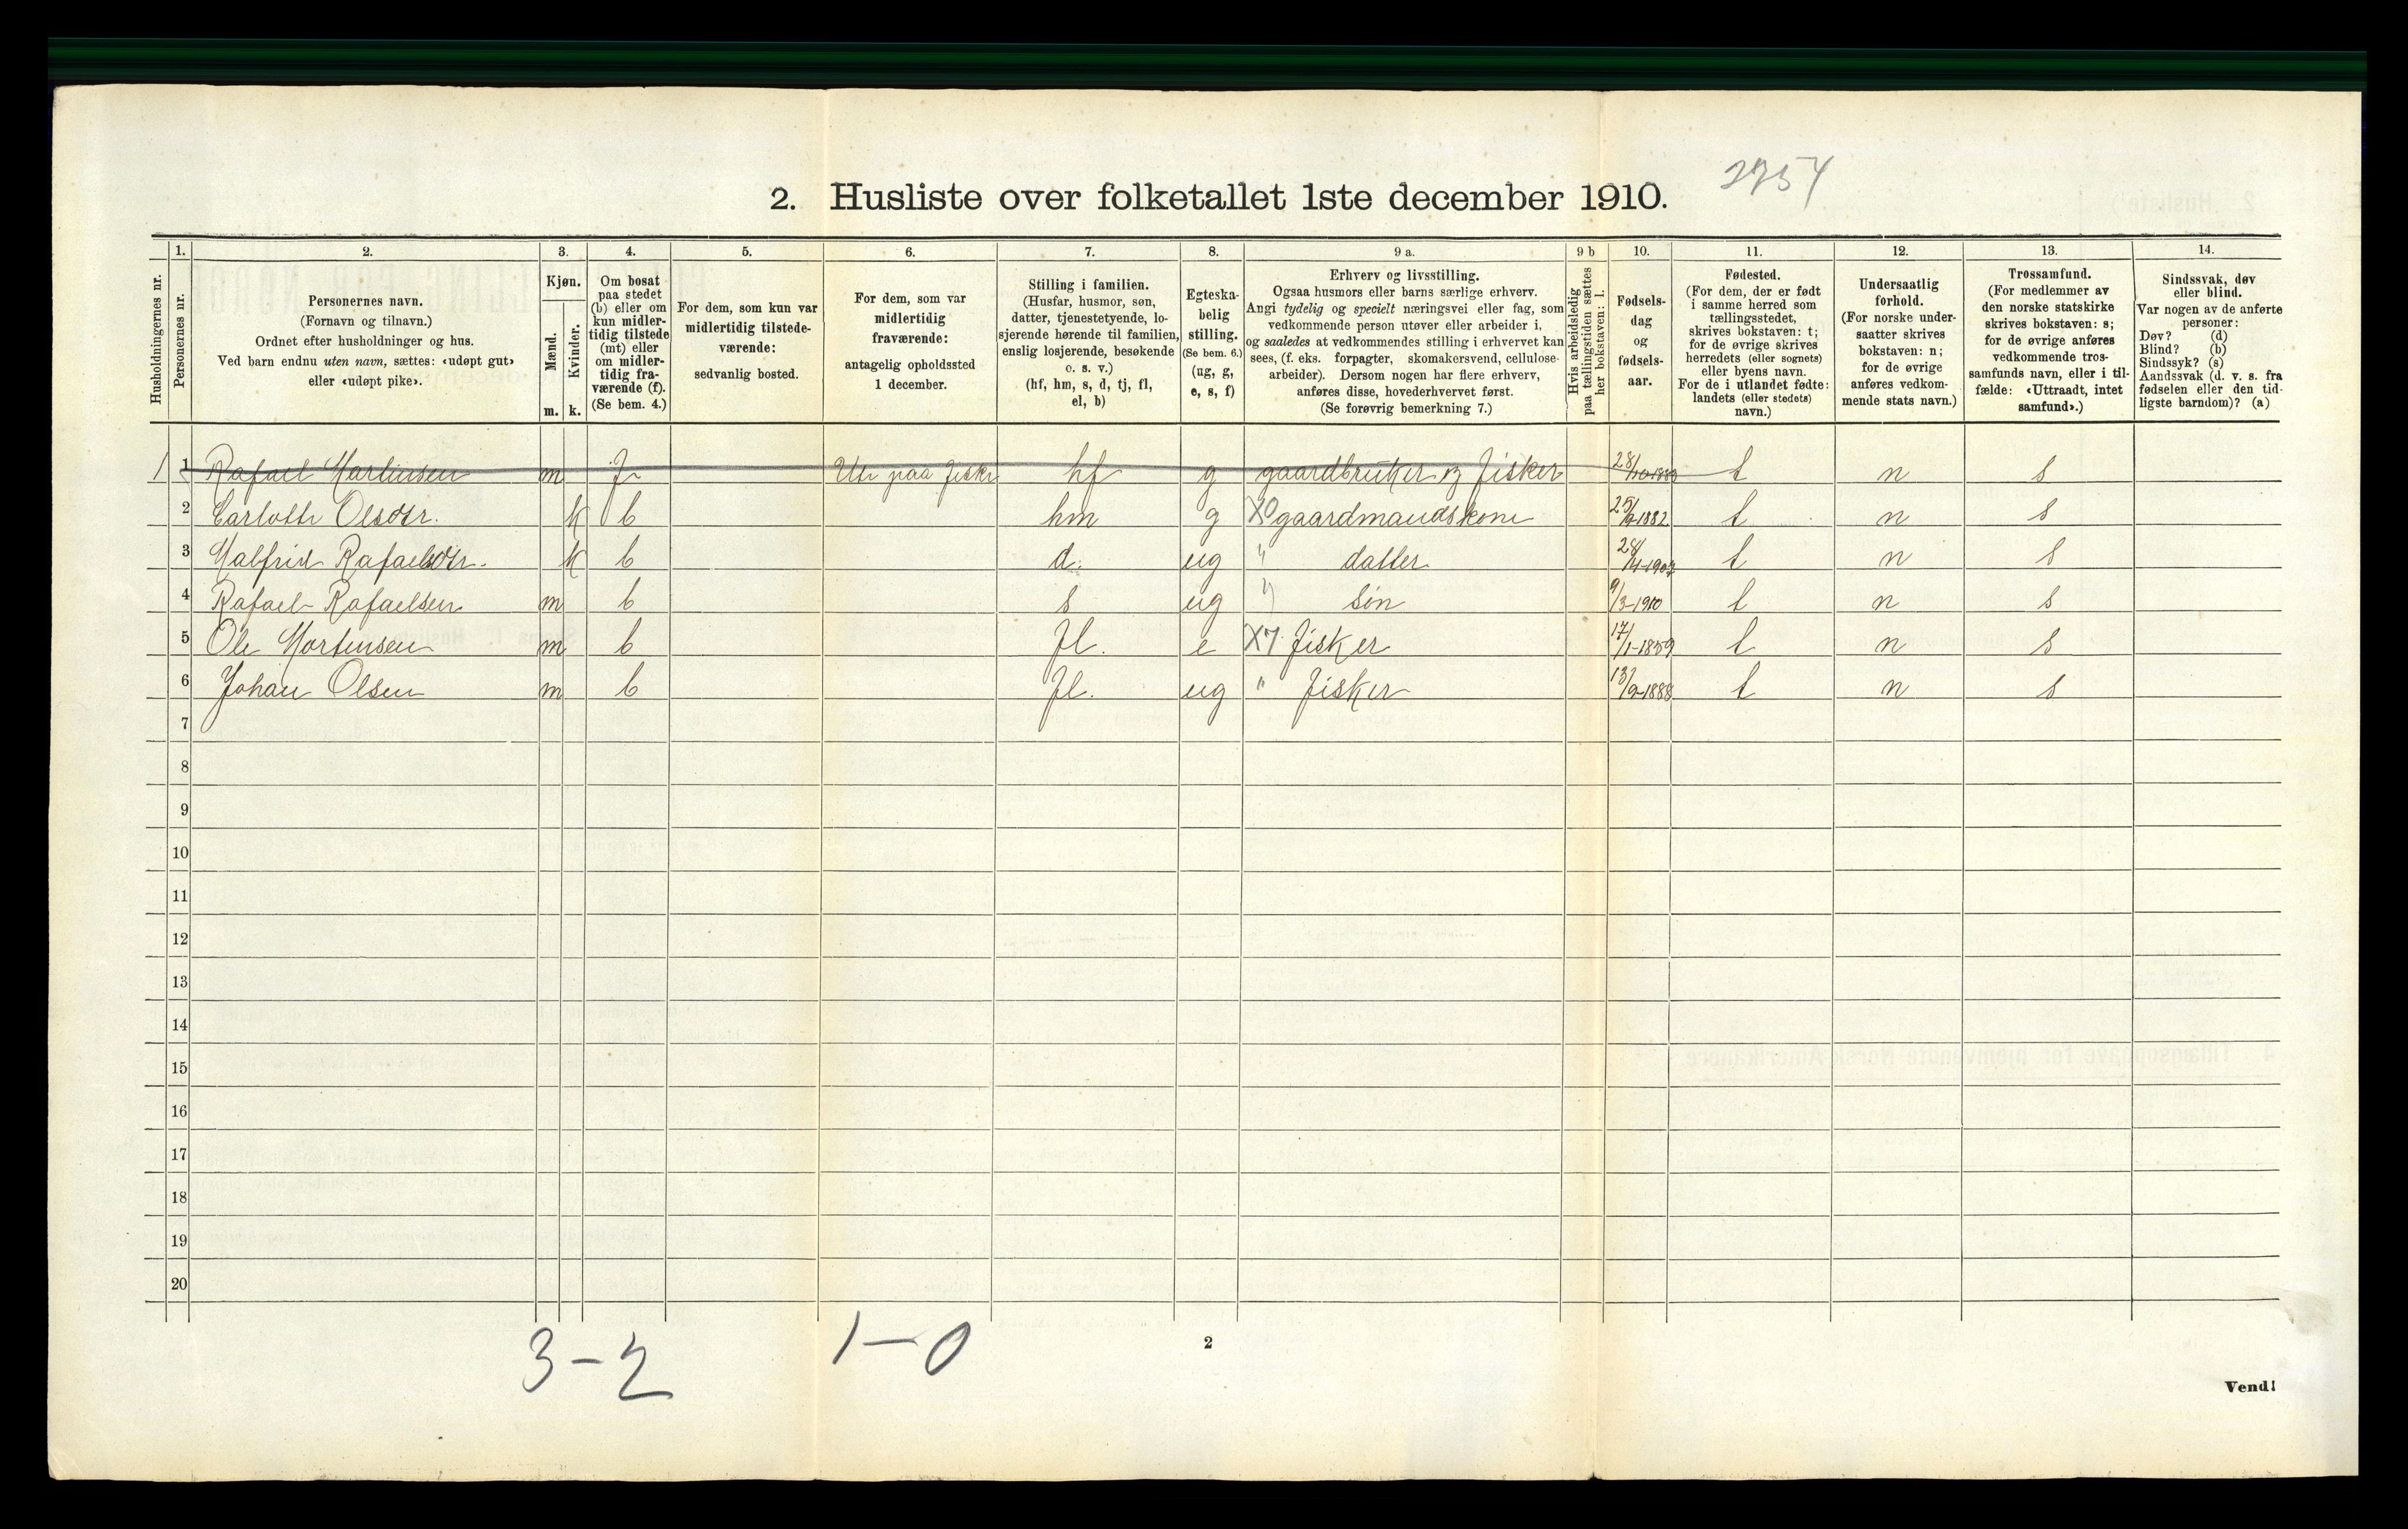 2754
2. Husliste over folketallet 1ste december 1910.
Husholdningernes nr.
1. Personernes nr.
2. Personernes navn. (Fornavn og tilnavn.) Ordnet efter husholdninger og hus. Ved barn endnu uten navn, sættes: «udøpt gut» eller «udøpt pike».
3. Kjøn. Mænd. m. Kvinder. k.
4. Om bosat paa stedet (b) eller om kun midlertidig tilstede (mt) eller om midlertidig fraværende (f). (Se bem. 4.)
5. For dem, som kun var midlertidig tilstedeværende: sedvanlig bosted.
6. For dem, som var midlertidig fraværende: antagelig opholdssted 1 december.
7. Stilling i familien. (Husfar, husmor, søn, datter, tjenestetyende, losjerende hørende til familien, enslig losjerende, besøkende o. s. v.) (hf, hm, s, d, tj, fl, el, b)
8. Egteskabelig stilling. (Se bem. 6.) (ug, g, e, s, f)
9 a. Erhverv og livsstilling. Ogsaa husmors eller barns særlige erhverv. Angi tydelig og specielt næringsvei eller fag, som vedkommende person utøver eller arbeider i, og saaledes at vedkommendes stilling i erhvervet kan sees, (f. eks. forpagter, skomakersvend, cellulosearbeider). Dersom nogen har flere erhverv, anføres disse, hovederhvervet først. (Se forøvrig bemerkning 7.)
9 b Hvis arbeidsledig paa tællingstiden sættes her bokstaven: l.
10. Fødselsdag og fødselsaar.
11. Fødested. (For dem, der er født i samme herred som tællingsstedet, skrives bokstaven: t; for de øvrige skrives herredets (eller sognets) eller byens navn. For de i utlandet fødte: landets (eller stedets) navn.)
12. Undersaatlig forhold. (For norske undersaatter skrives bokstaven: n; for de øvrige anføres vedkommende stats navn.)
13. Trossamfund. (For medlemmer av den norske statskirke skrives bokstaven: s; for de øvrige anføres vedkommende trossamfunds navn, eller i tilfælde: «Uttraadt, intet samfund».)
14. Sindssvak, døv eller blind. Var nogen av de anførte personer: Døv? (d) Blind? (b) Sindssyk? (s) Aandssvak (d. v. s. fra fødselen eller den tidligste barndom)? (a)
1 1 Rafael Martinsen m f Ute paa fiske hf g gaardbruker og fisker 28/10-188 t n s
2 Carlotte Olsdtr. k b hm g X0 gaardmandskone 25/9-1882 t n s
3 Malfrid Rafaelsdtr. k b d. ug " datter 28/4-1907 t n s
4 Rafael Rafaelsen m b s ug " søn 9/3-1910 t n s
5 Ole Mortensen m b fl. e X7. fisker 17/1-1859 t n s
6 Johan Olsen m b fl. ug " fisker 13/9-1888 t n s
7
8
9
10
11
12
13
14
15
16
17
18
19
20
3-2 1-0
2
Vend!